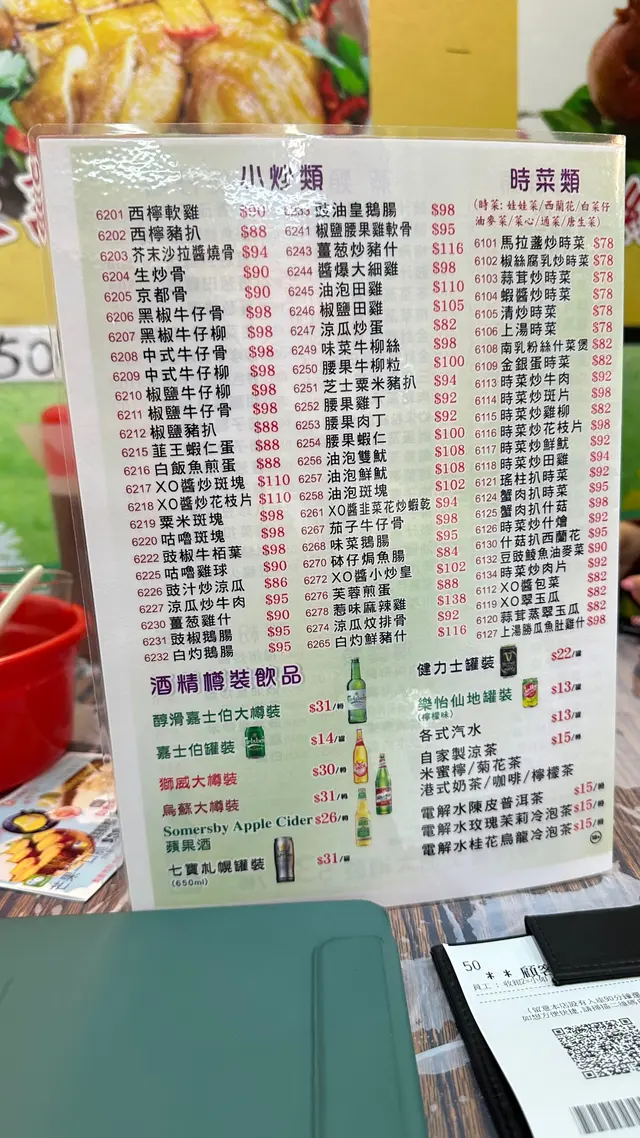 小炒類
6201 西檸軟雞 $90
6202 西檸豬扒 $88
6203 芥末沙拉醬燒骨 $94
6204 生炒骨 $90
6205 京都骨 $90
6206 黑椒牛仔骨 $98
6207 黑椒牛仔柳 $98
6208 中式牛仔骨 $98
6209 中式牛仔柳 $98
6210 椒鹽牛仔柳 $98
6211 椒鹽牛仔骨 $98
6212 椒鹽豬扒 $88
6215 韮王蝦仁蛋 $88
6216 白飯魚煎蛋 $88
6217 XO醬炒斑塊 $110
6218 XO醬炒花枝片 $110
6219 粟米斑塊 $98
6220 咕嚕斑塊 $98
6222 豉椒牛栢葉 $98
6225 咕嚕雞球 $90
6226 豉汁炒涼瓜 $86
6227 涼瓜炒牛肉 $95
6230 薑葱雞什 $90
6231 豉椒鵝腸 $95
6232 白灼鵝腸 $95
豉油皇鵝腸 $98
6241 椒鹽腰果雞軟骨 $95
6243 薑葱炒豬什 $116
6244 醬爆大細雞 $98
6245 油泡田雞 $110
6246 椒鹽田雞 $105
6247 涼瓜炒蛋 $82
6249 味菜牛柳絲 $98
6250 腰果牛柳粒 $100
6251 芝士粟米豬扒 $94
6252 腰果雞丁 $92
6253 腰果肉丁 $92
6254 腰果蝦仁 $100
6256 油泡雙魷 $108
6257 油泡鮮魷 $108
6258 油泡斑塊 $108
6261 XO醬韮菜花炒蝦乾 $94
6267 茄子牛仔骨 $98
6268 味菜鵝腸 $95
6270 砵仔焗魚腸 $84
6272 XO醬小炒皇 $102
6276 芙蓉煎蛋 $88
6278 惹味麻辣雞 $138
6274 涼瓜炆排骨 $92
6265 白灼鮮豬什 $116
時菜類
(時菜: 娃娃菜/西蘭花/白菜仔
油麥菜/菜心/通菜/唐生菜)
6101 馬拉盞炒時菜 $78
6102 椒絲腐乳炒時菜 $78
6103 蒜茸炒時菜 $78
6104 蝦醬炒時菜 $78
6105 清炒時菜 $78
6106 上湯時菜 $78
6108 南乳粉絲什菜煲 $82
6109 金銀蛋時菜 $82
6113 時菜炒牛肉 $92
6114 時菜炒斑片 $98
6115 時菜炒雞柳 $82
6116 時菜炒花枝片 $98
6117 時菜炒鮮魷 $92
6118 時菜炒田雞 $94
6121 瑤柱扒時菜 $92
6124 蟹肉扒時菜 $95
6125 蟹肉扒什菇 $98
6126 時菜炒什燴 $92
6130 什菇扒西蘭花 $95
6132 豆豉鯪魚油麥菜 $90
6134 時菜炒肉片 $92
6112 XO醬包菜 $82
6119 XO翠玉瓜 $82
6120 蒜茸蒸翠玉瓜 $82
6127 上湯勝瓜魚肚雞什 $98
酒精樽裝飲品
醇滑嘉士伯大樽裝 $31/樽
嘉士伯罐裝 $14/罐
獅威大樽裝 $30/樽
烏蘇大樽裝 $31/樽
Somersby Apple Cider $26/樽
蘋果酒
七寶札幌罐裝 $31/罐
(650ml)
健力士罐裝 $22/罐
樂怡仙地罐裝 $13/罐
(檸檬味)
各式汽水 $13/罐
自家製涼茶 $15/樽
米蜜檸/菊花茶
港式奶茶/咖啡/檸檬茶
電解水陳皮普洱茶 $15/樽
電解水玫瑰茉莉冷泡茶 $15/樽
電解水桂花烏龍冷泡茶 $15/樽
50
50
** 顧客